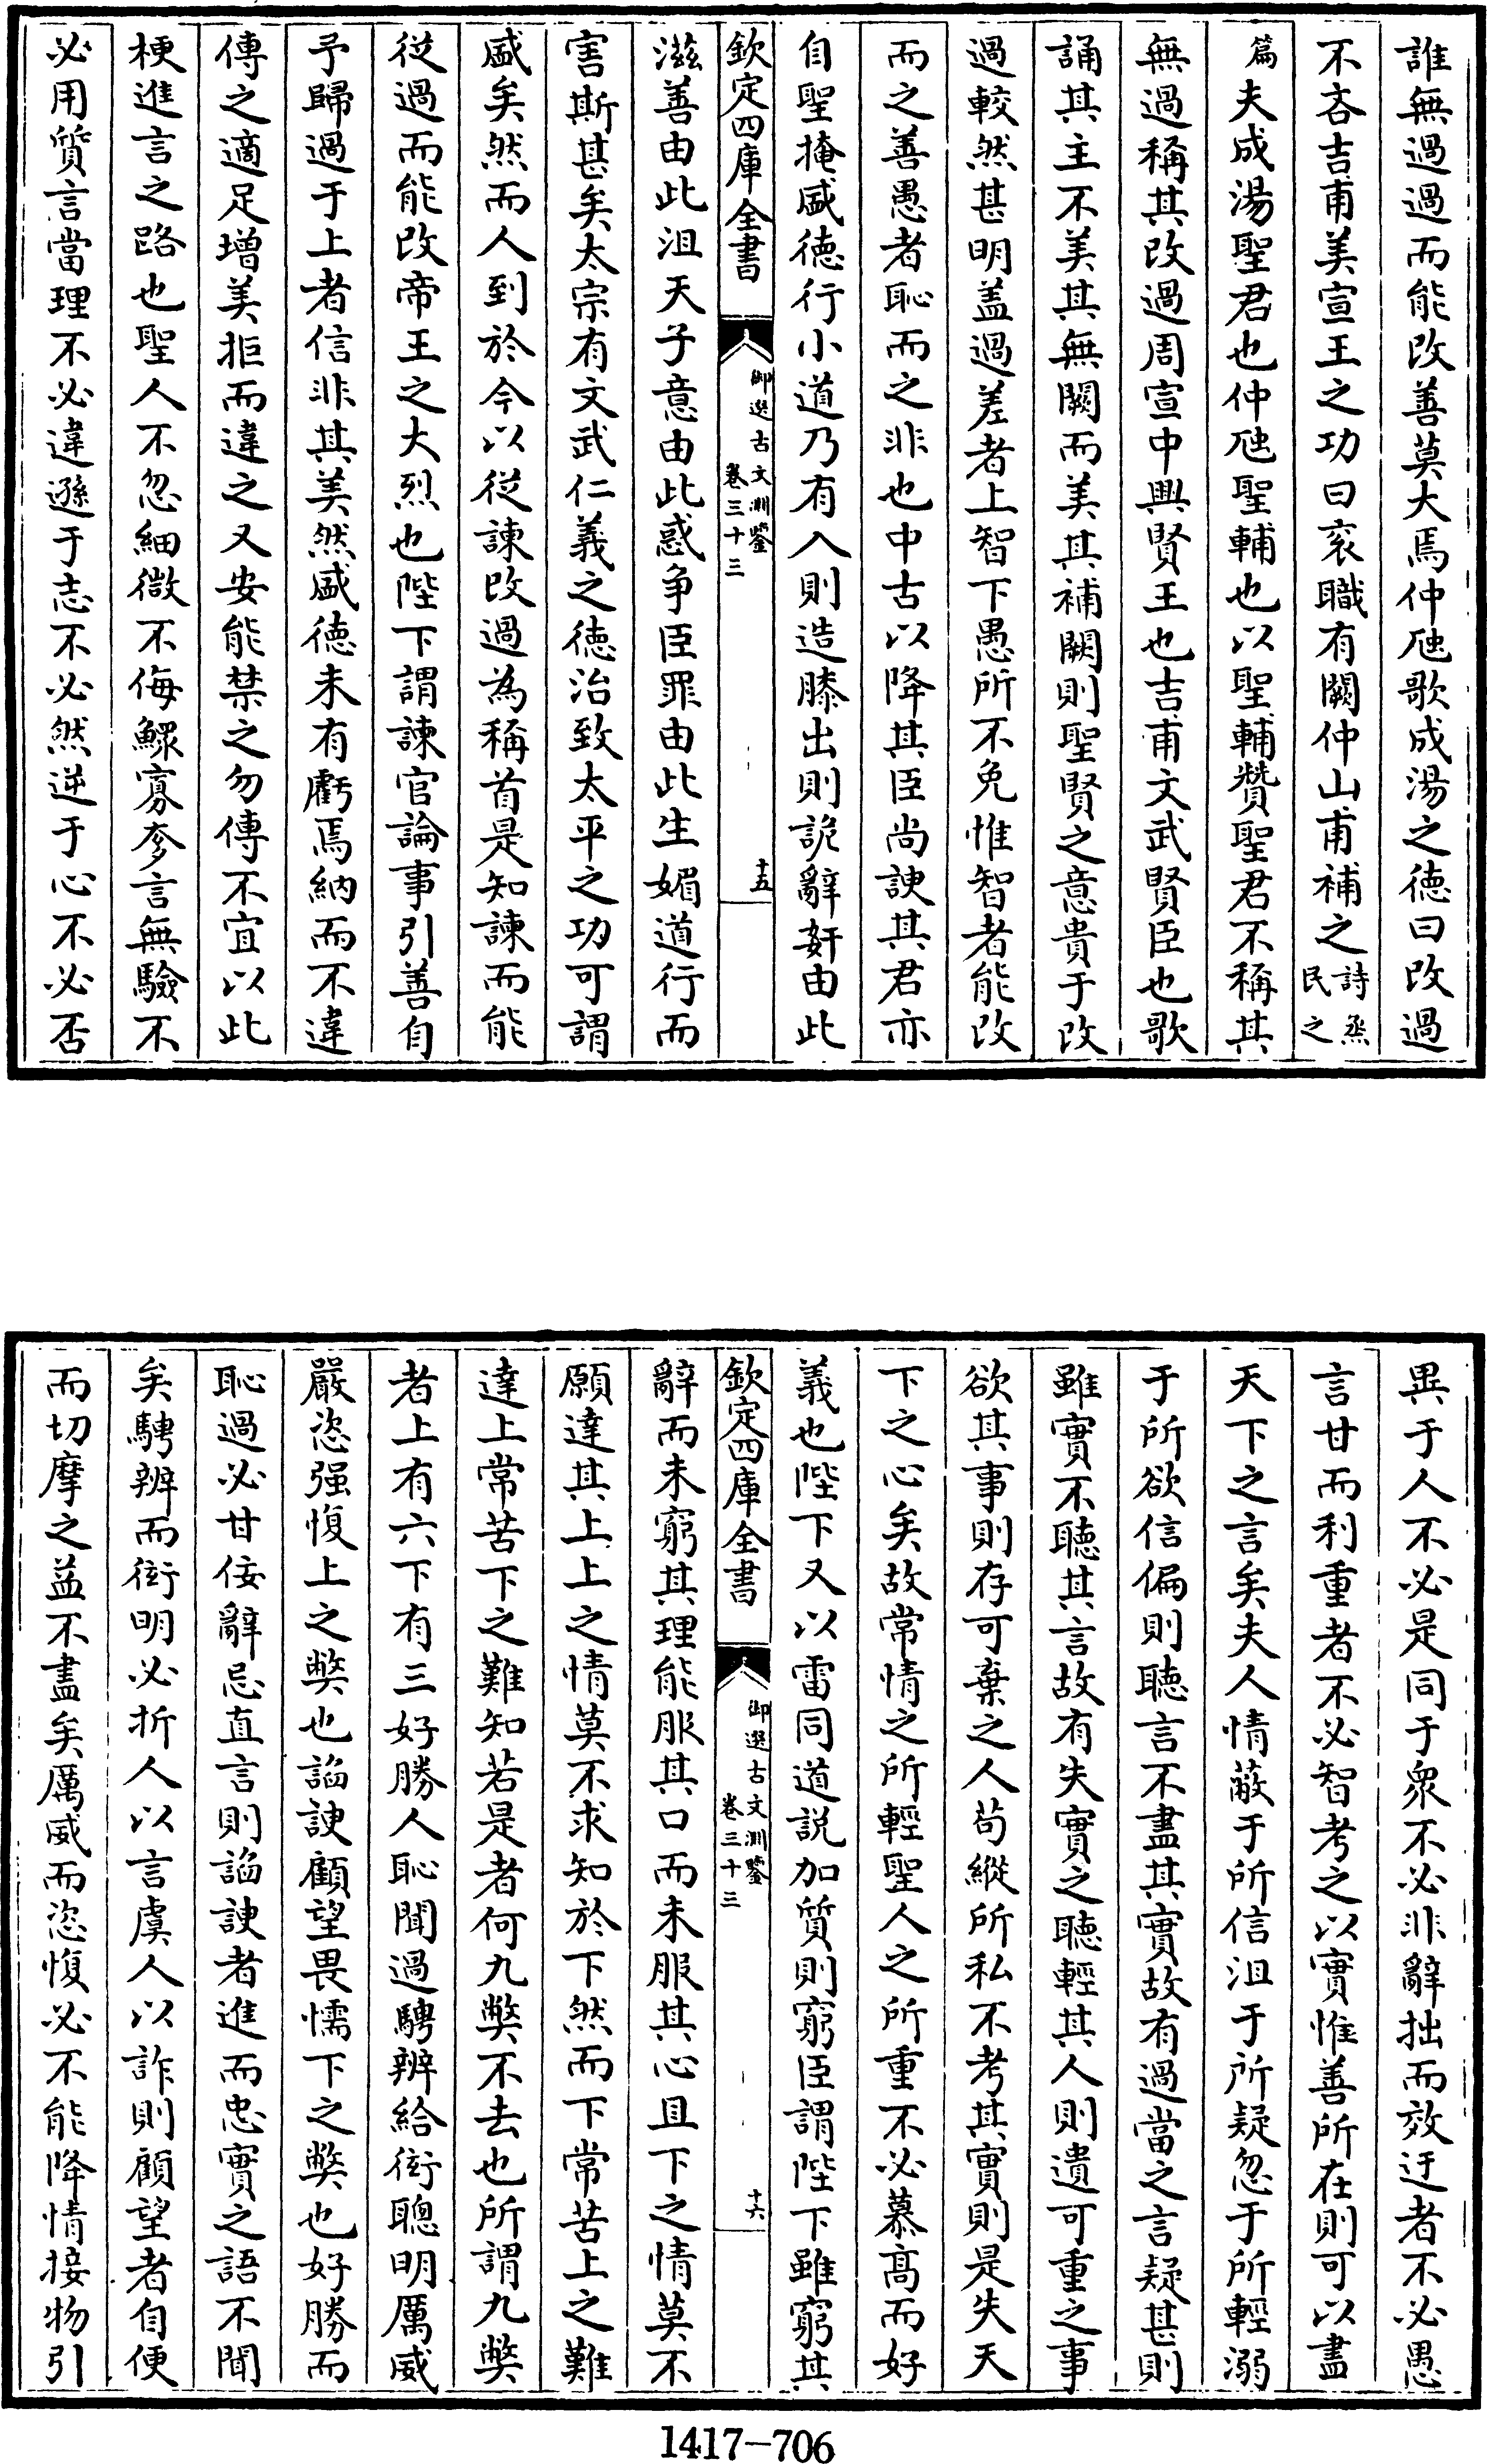 誰無過過而能改善莫大焉仲虺歌成湯之徳曰改過
不吝吉甫美宣王之功曰衮職有闕仲山甫補之詩烝民之
篇夫成湯聖君也仲虺聖輔也以聖輔贊聖君不稱其
無過稱其改過周宣中興賢王也吉甫文武賢臣也歌
誦其主不美其無闕而美其補闕則聖賢之意貴于改
過較然甚明盖過差者上智下愚所不免惟智者能改
而之善愚者恥而之非也中古以降其臣尚諛其君亦
自聖掩盛徳行小道乃有入則造膝出則詭辭姧由此
欽定四庫全書
御選古文淵鑒
卷三十三
十五
滋善由此沮天子意由此惑争臣罪由此生媚道行而
害斯甚矣太宗有文武仁義之徳治致太平之功可謂
盛矣然而人到於今以從諫改過為稱首是知諫而能
從過而能改帝王之大烈也陛下謂諫官論事引善自
予歸過于上者信非其美然盛徳未有虧焉納而不違
傳之適足増美拒而違之又安能禁之勿傳不宜以此
梗進言之路也聖人不忽細微不侮鰥寡奓言無驗不
必用質言當理不必違遜于志不必然逆于心不必否
異于人不必是同于衆不必非辭拙而效迂者不必愚
言甘而利重者不必智考之以實惟善所在則可以盡
天下之言矣夫人情蔽于所信沮于所疑忽于所輕溺
于所欲信偏則聽言不盡其實故有過當之言疑甚則
雖實不聽其言故有失實之聽輕其人則遺可重之事
欲其事則存可棄之人茍縱所私不考其實則是失天
下之心矣故常情之所輕聖人之所重不必慕髙而好
義也陛下又以雷同道説加質則窮臣謂陛下雖窮其
欽定四庫全書
御選古文淵鑒
卷三十三
十六
辭而未窮其理能服其口而未服其心且下之情莫不
願達其上上之情莫不求知於下然而下常苦上之難
達上常苦下之難知若是者何九獘不去也所謂九獘
者上有六下有三好勝人恥聞過騁辨給衒聰明厲威
嚴恣强愎上之獘也諂諛顧望畏懦下之獘也好勝而
恥過必甘佞辭忌直言則諂諛者進而忠實之語不聞
矣騁辨而衒明必折人以言虞人以詐則顧望者自便
而切摩之益不盡矣厲威而恣愎必不能降情接物引
1417-706